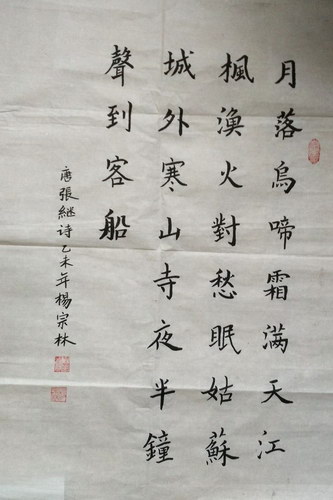 月落烏啼霜満天江
楓漁火對愁眠姑蘇
城外寒山寺夜半鐘
聲到客船
唐張継诗乙未年楊宗林